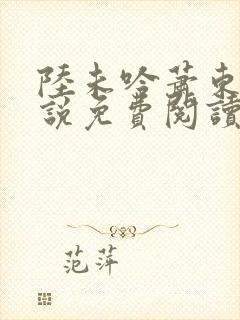 陸未吟蕭東
說免費閱讀
范萍